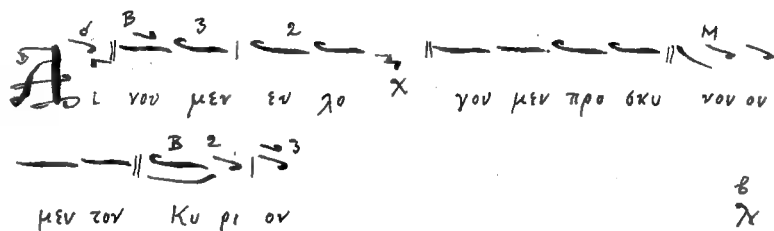 δ Β 3 2 Μ
Α ι νου μεν ευ λο χ γου μεν προ σκυ νου ου
Β 2 3
μεν τον Κυ ρι ον